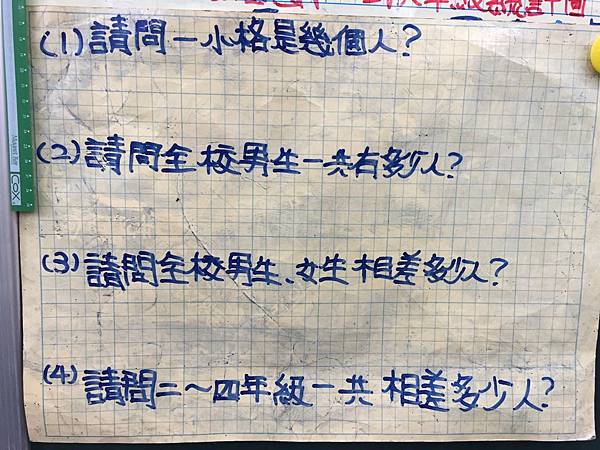 (1)請問一小格是幾個人?
(2)請問全校男生一共有多少人?
(3)請問全校男生、女生相差多少人?
(4)請問二～四年級一共相差多少人?
COX